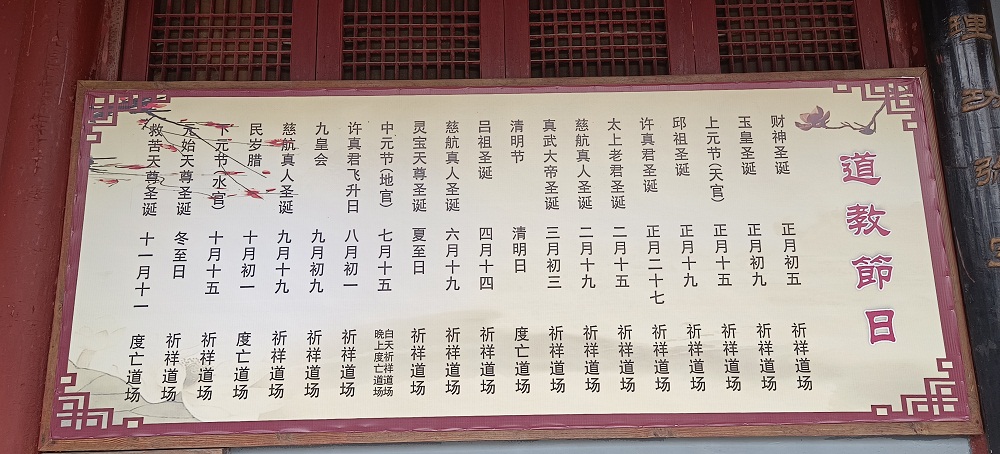 道教節日
财神圣诞 正月初五 祈祥道场
玉皇圣诞 正月初九 祈祥道场
上元节(天官) 正月十五 祈祥道场
邱祖圣诞 正月十九 祈祥道场
许真君圣诞 正月二十七 祈祥道场
太上老君圣诞 二月十五 祈祥道场
慈航真人圣诞 二月十九 祈祥道场
真武大帝圣诞 三月初三 祈祥道场
清明节 清明日 度亡道场
吕祖圣诞 四月十四 祈祥道场
慈航真人圣诞 六月十九 祈祥道场
灵宝天尊圣诞 夏至日 祈祥道场
中元节(地官) 七月十五 白天祈祥道场 晚上度亡道场
许真君飞升日 八月初一 祈祥道场
九皇会 九月初九 祈祥道场
慈航真人圣诞 九月十九 祈祥道场
民岁腊 十月初一 度亡道场
下元节(水官) 十月十五 祈祥道场
元始天尊圣诞 冬至日 祈祥道场
救苦天尊圣诞 十一月十一 度亡道场
理